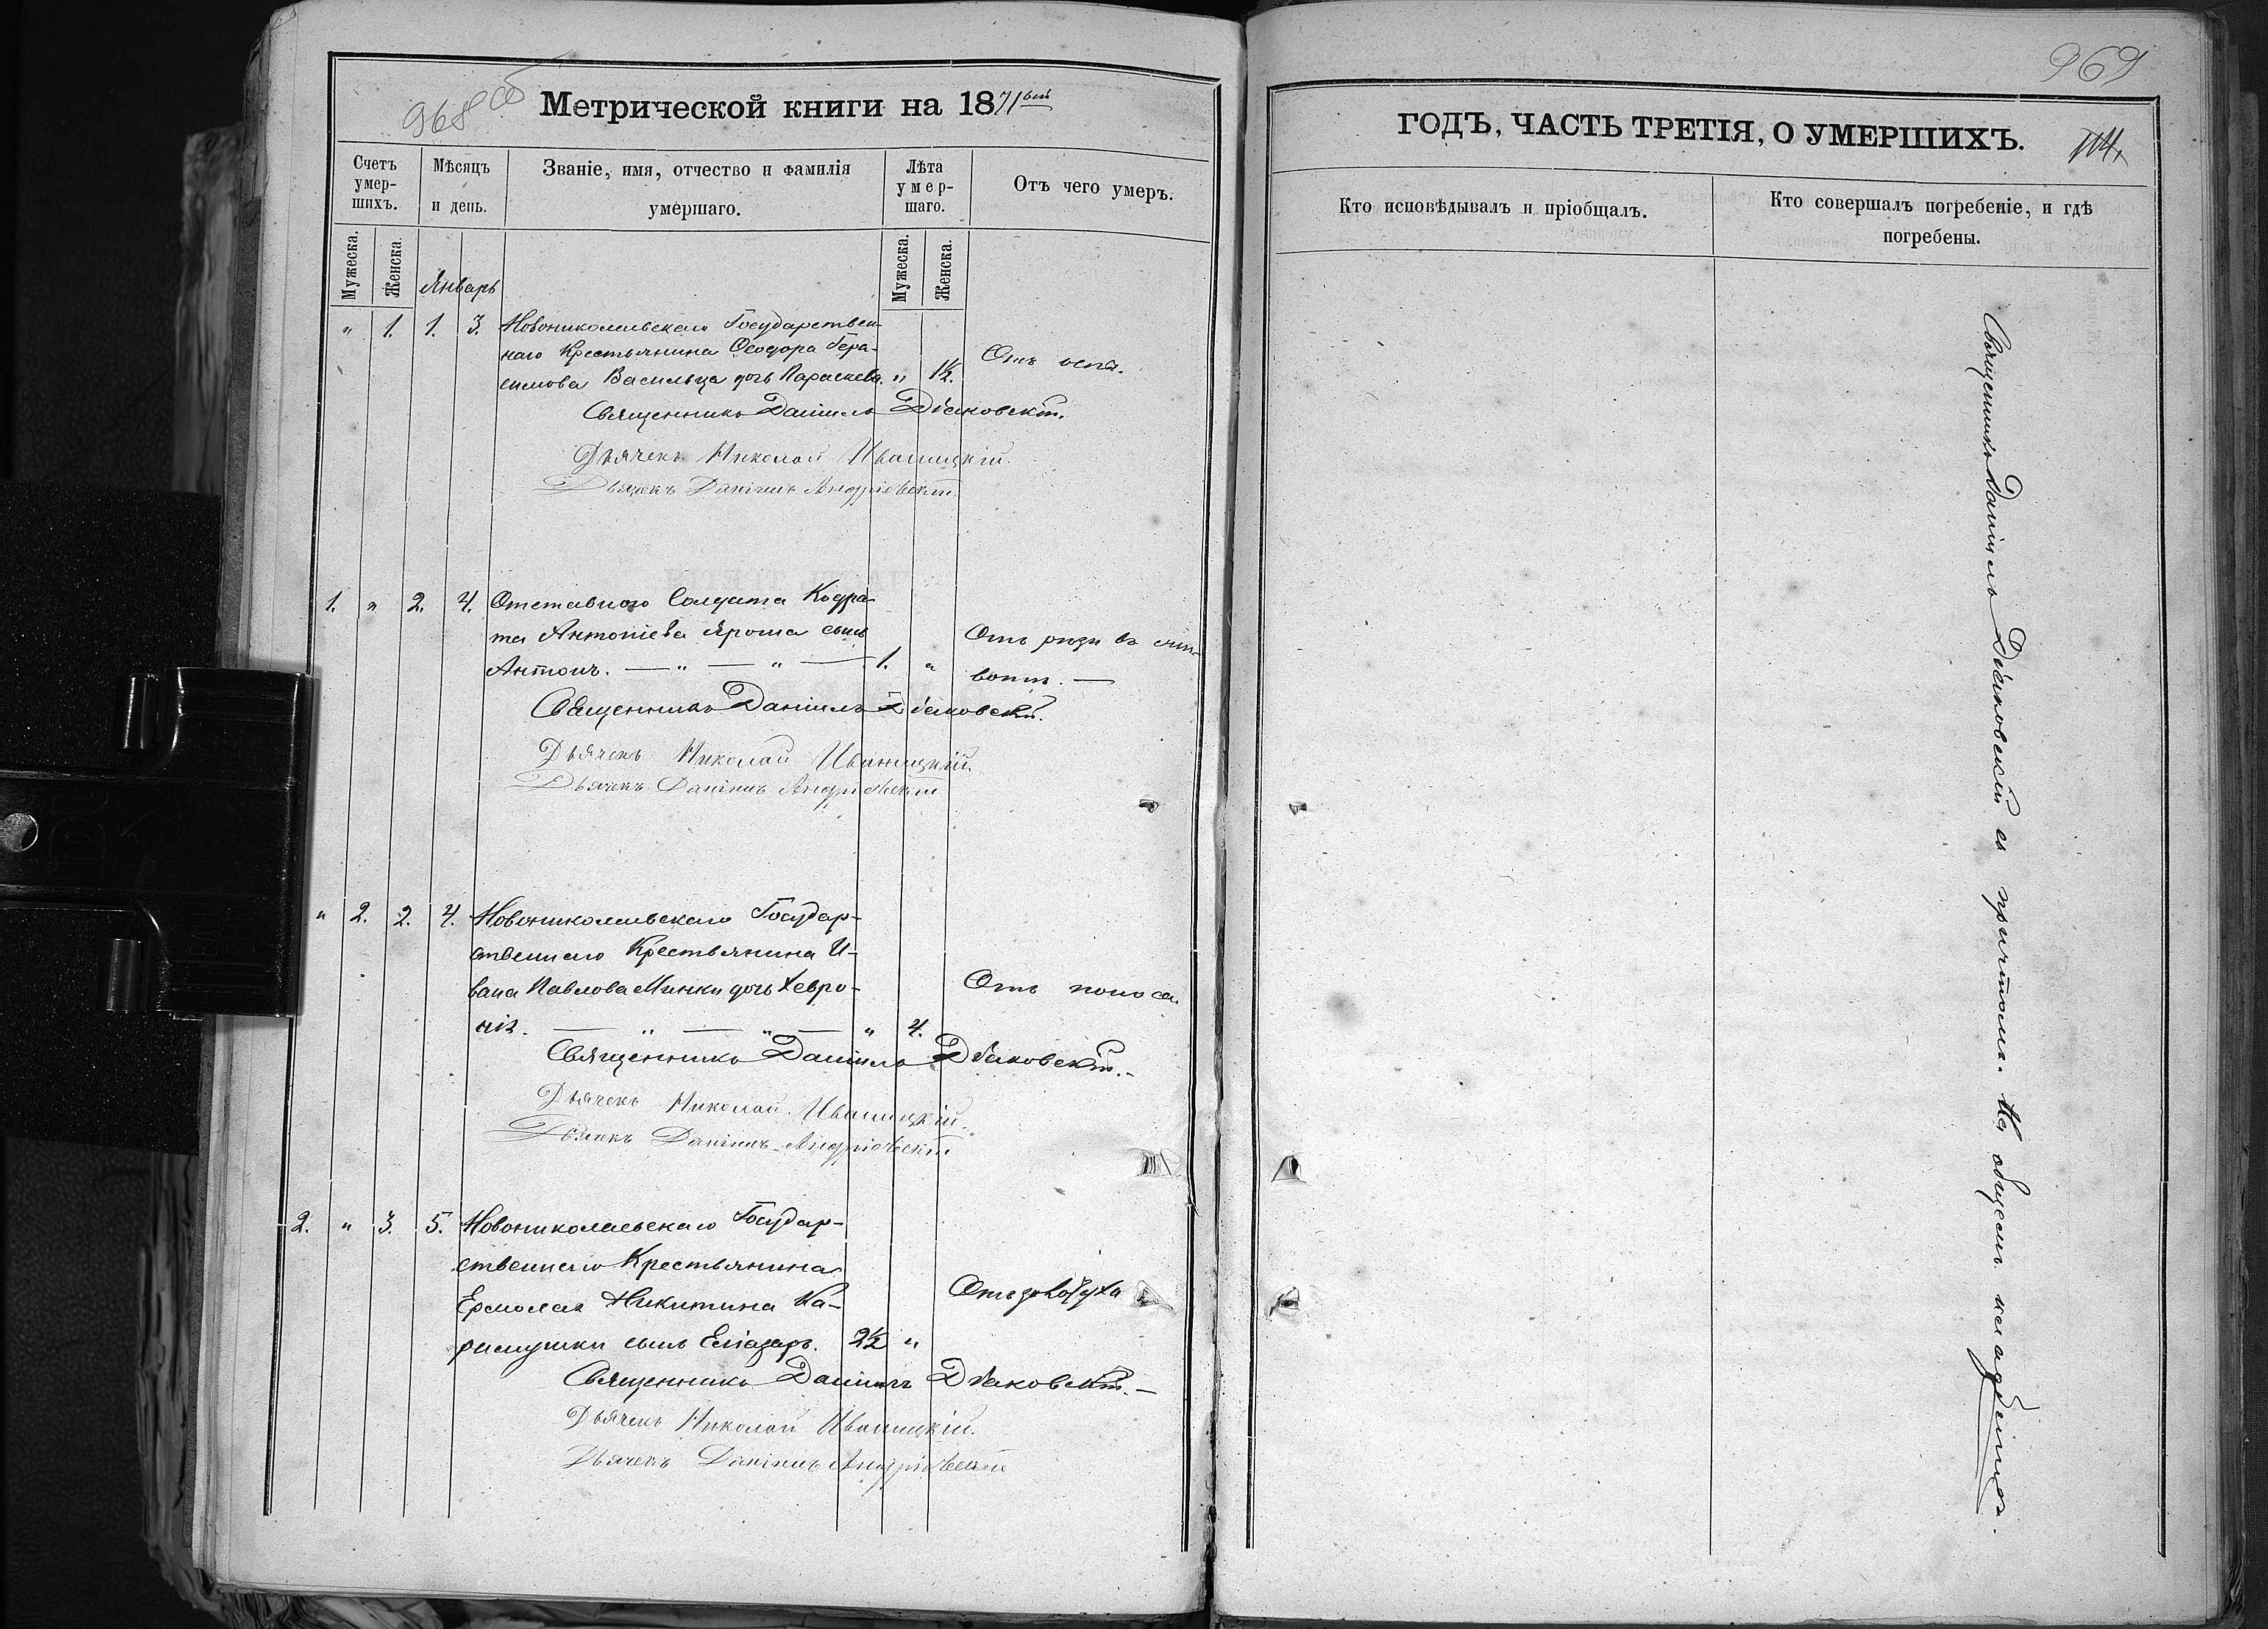 968 об
Метрической книги на 1871вый
Счетъ умер-шихъ.
Мѣсяцъ и день.
Званіе, имя, отчество и фамилія умершаго.
Лѣта умер-шаго.
Отъ чего умеръ.
Мужеска.
Женска.
Январь
Мужеска.
Женска.
" 1. 1. 3. Новониколаевскаго Государствен-
наго Крестьянина Ѳеодора Гера-
симова Васильца дочь Параскева. " 1½. Отъ оспы.
Священникъ Даніилъ Дьяковскій.
Дьячекъ Николай Иваницкій.
Дьячекъ Даніилъ Андріевскій
1. " 2. 4. Отставного Солдата Кодра-
та Антоніева Яроша сынъ
Антонъ. — " — " — 1. " Отъ рези въ жи-
вотѣ. —
Священникъ Даніилъ Дьяковскій.
Дьячекъ Николай Иваницкій.
Дьячекъ Даніилъ Андріевскій
" 2. 2. 4. Новониколаевскаго Государ-
ственнаго Крестьянина И-
вана Павлова Минки дочь Хевро-
нія. — " — " — " 4. Отъ поноса.
Священникъ Даніилъ Дьяковскій.-
Дьячекъ Николай Иваницкій.
Дьячекъ Даніилъ Андріевскій
2. " 3. 5. Новониколаевскаго Государ-
ственнаго Крестьянина
Ермолая Никитина Ка-
рамушки сынъ Еліазаръ. 2½ "
Священникъ Даніилъ Дьяковскій.—
Дьячекъ Николай Иваницкій.
Дьячекъ Даніилъ Андріевскій
969
ГОДЪ, ЧАСТЬ ТРЕТІЯ, О УМЕРШИХЪ.
114.
Кто исповѣдывалъ и пріобщалъ.
Кто совершалъ погребеніе, и гдѣ погребены.
Священникъ Даніилъ Дьяковскій съ причтомъ. На общемъ кладбищѣ.